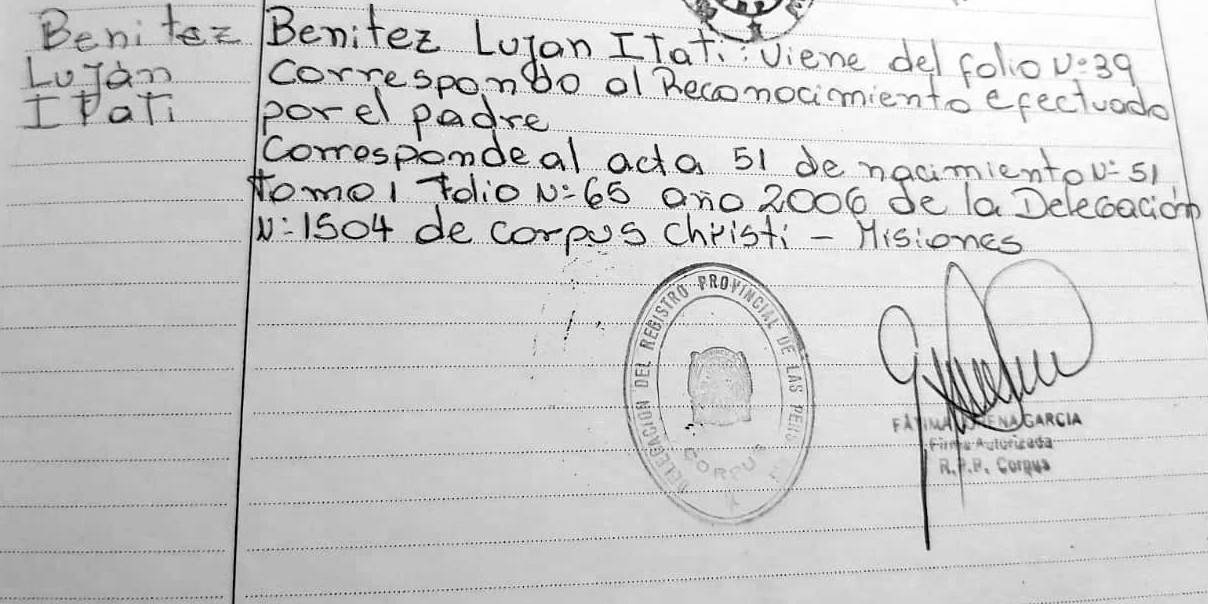 Benitez
Luján
Itati
Benitez Lujan Itati: Viene del folio N:39
Correspondo al Reconocimiento efectuado
por el padre
Corresponde al acta 51 de nacimiento N: 51
tomo 1 folio N:65 año 2006 de la Delegación
N:1504 de Corpus Christi - Misiones
DELEGACION DEL REGISTRO PROVINCIAL DE LAS
CORPUS
GARCIA
Firma Autorizada
R.P.P. Corpus